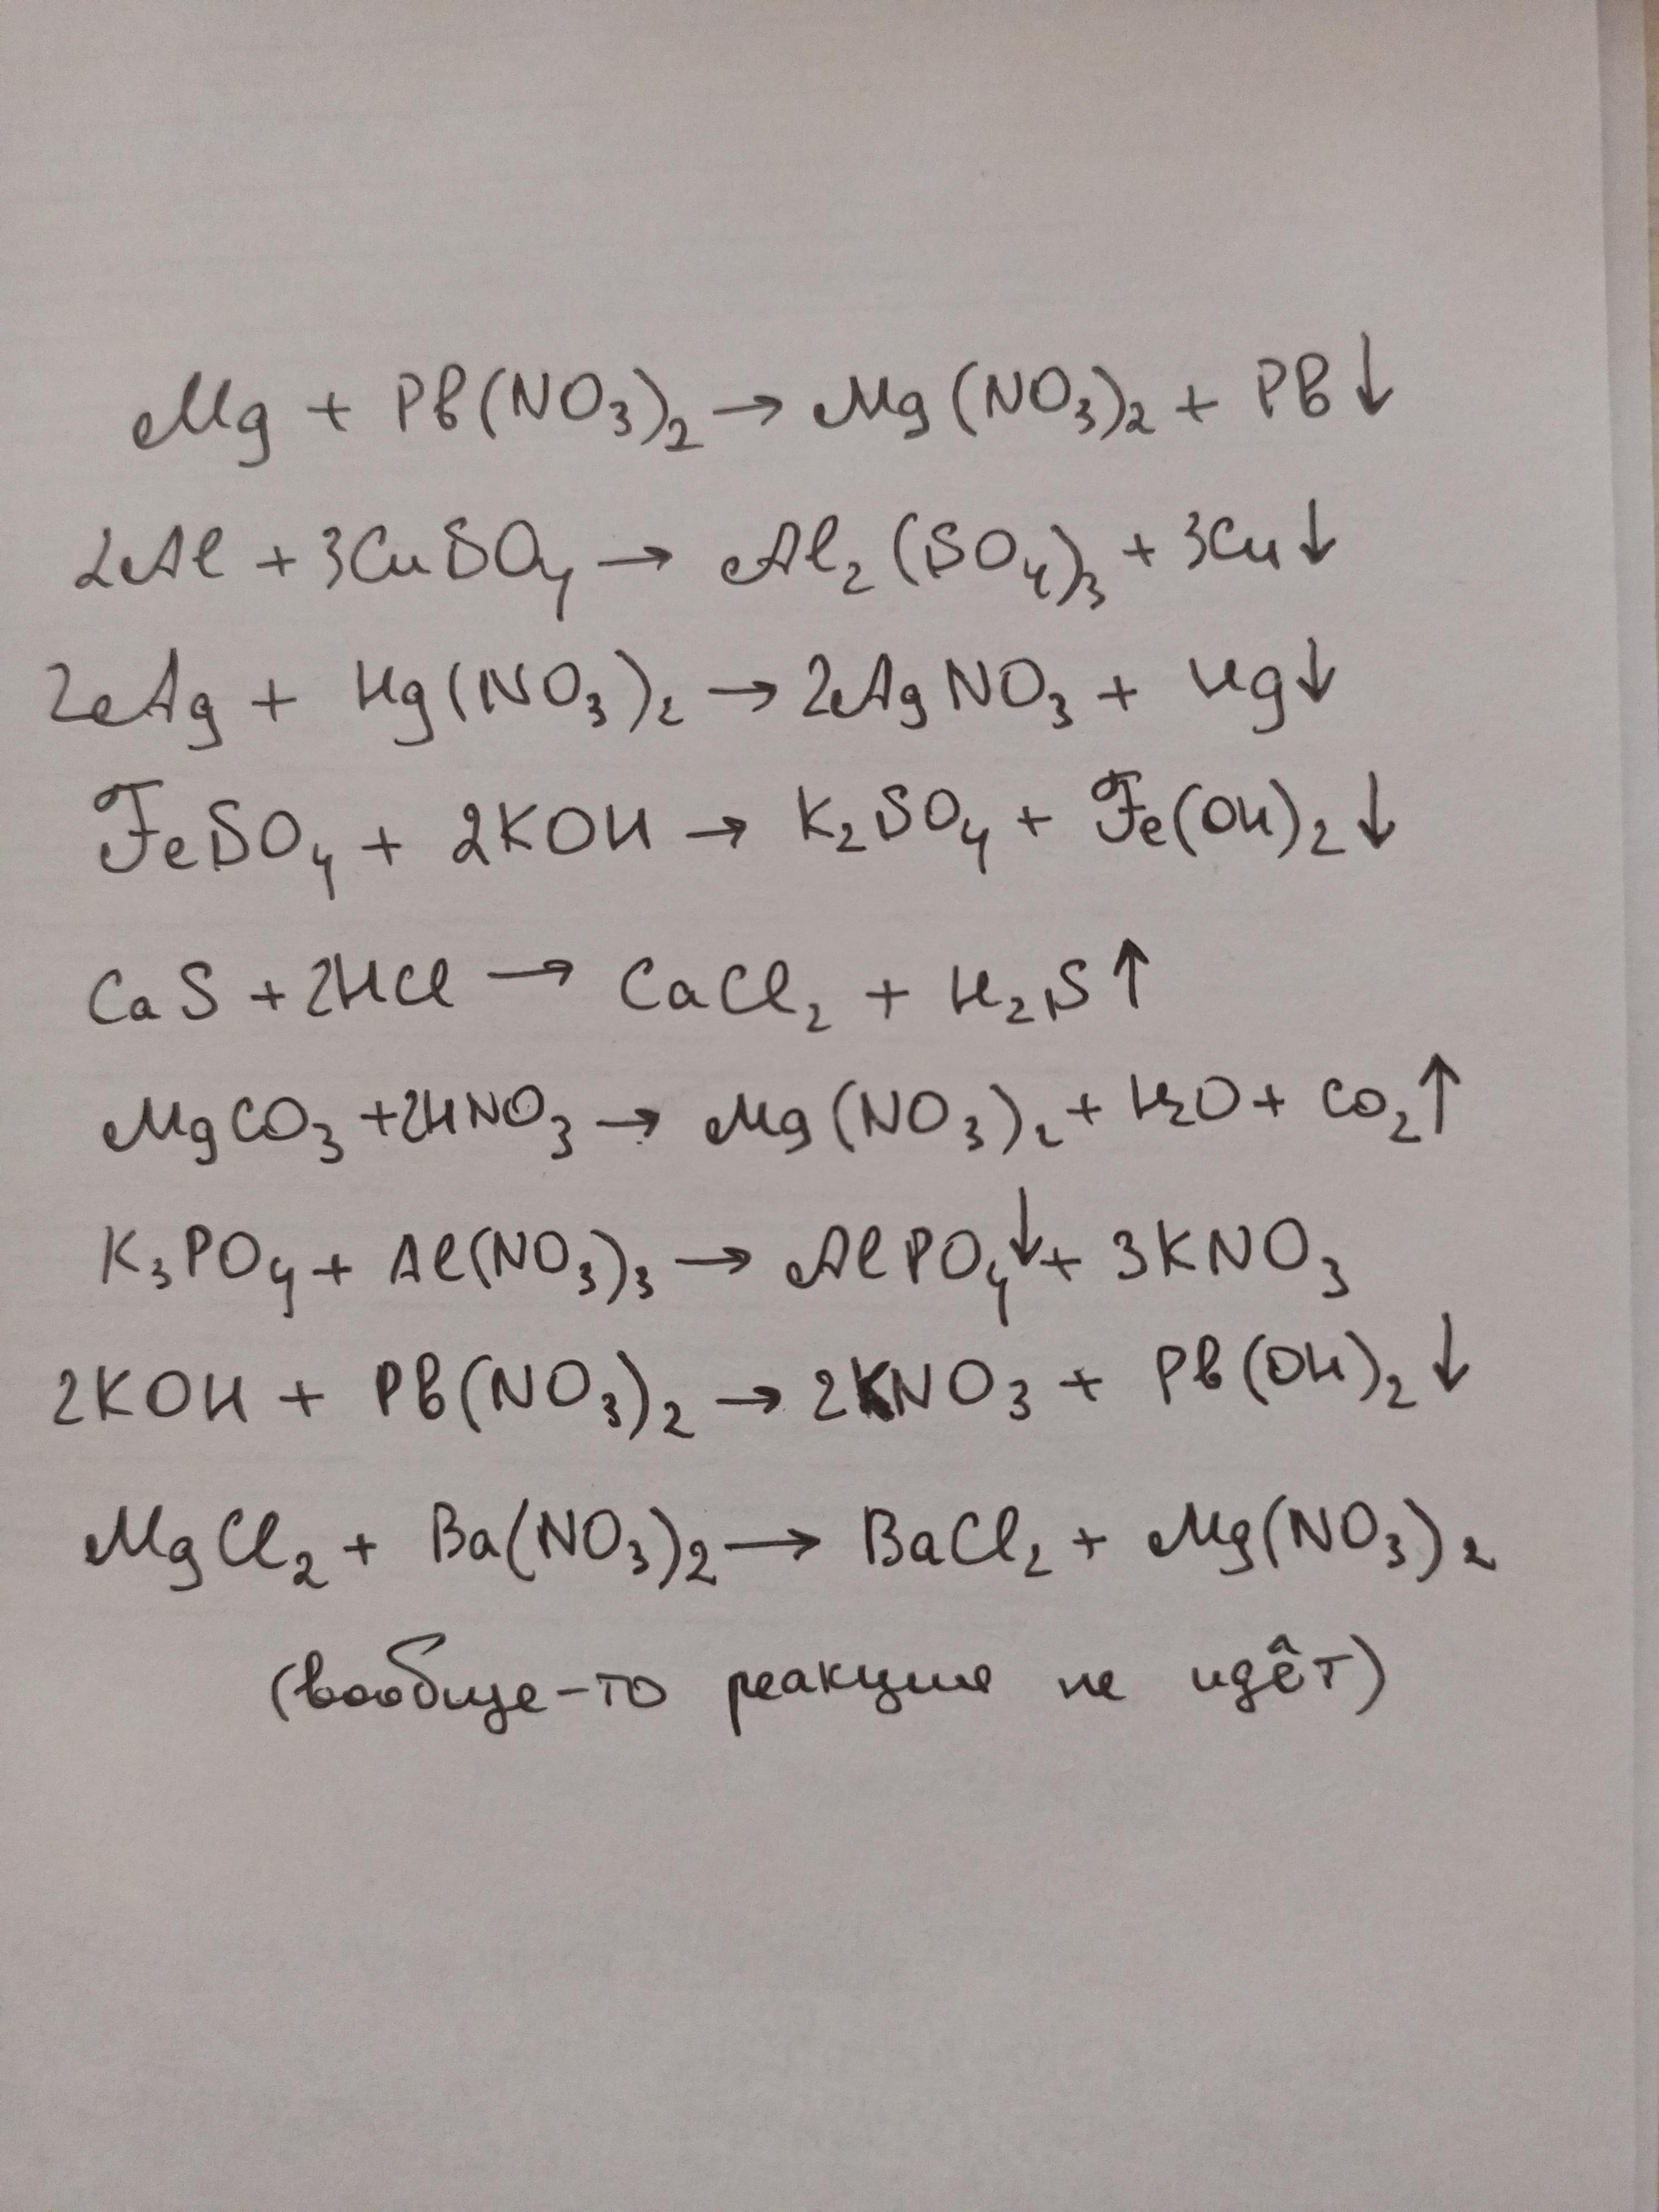 Mg + Pb(NO₃)₂ → Mg(NO₃)₂ + PB↓
2Al + 3CuSO₄ → Al₂(SO₄)₃ + 3Cu↓
2Ag + Hg(NO₃)₂ → 2AgNO₃ + Hg↓
FeSO₄ + 2KOH → K₂SO₄ + Fe(OH)₂↓
CaS + 2HCl → CaCl₂ + H₂S↑
MgCO₃ + 2HNO₃ → Mg(NO₃)₂ + H₂O + CO₂↑
K₃PO₄ + Al(NO₃)₃ → AlPO₄↓ + 3KNO₃
2KOH + Pb(NO₃)₂ → 2KNO₃ + Pb(OH)₂↓
MgCl₂ + Ba(NO₃)₂ → BaCl₂ + Mg(NO₃)₂
(вообще-то реакция не идёт)